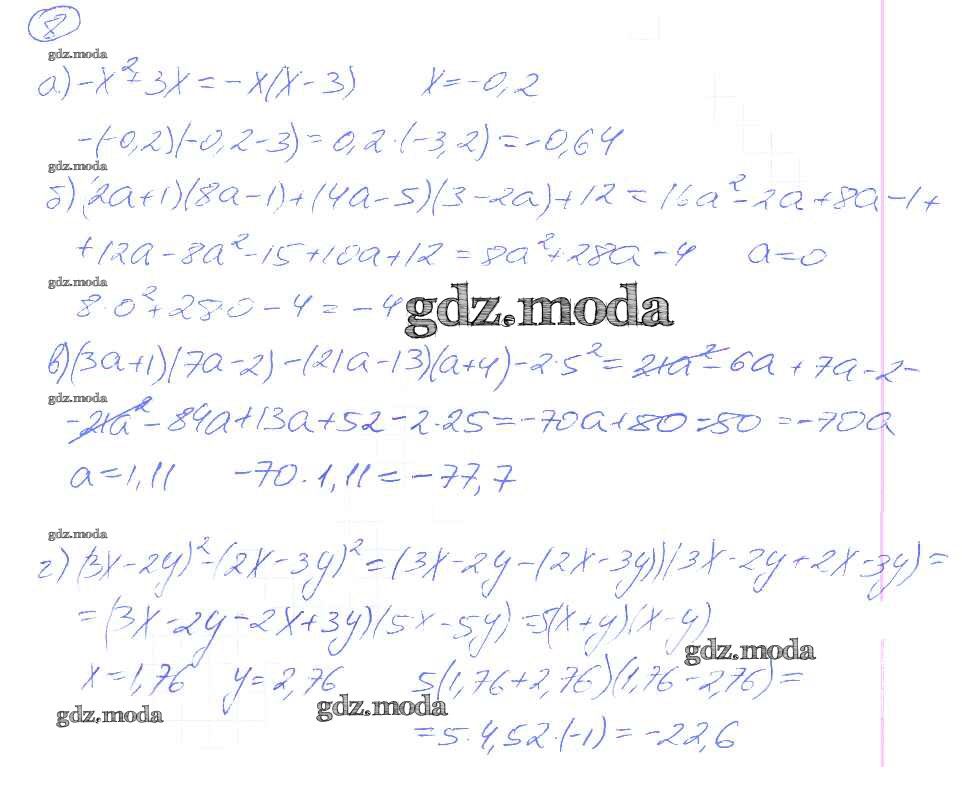 8
gdz.moda
а) -x²+3x = -x(x-3)   x=-0,2
-(-0,2)(-0,2-3)=0,2·(-3,2)=-0,64
gdz.moda
б) (2a+1)(8a-1)+(4a-5)(3-2a)+12=16a²-2a+8a-1+
+12a-8a²-15+10a+12=8a²+28a-4   a=0
gdz.moda
8·0²+28·0-4=-4
gdz.moda
в) (3a+1)(7a-2)-(21a-13)(a+4)-2·5²=21a²-6a+7a-2-
gdz.moda
-21a²-84a+13a+52-2·25=-70a+80=80=-70a
a=1,11   -70·1,11=-77,7
gdz.moda
г) (3x-2y)²-(2x-3y)²=(3x-2y-(2x-3y))(3x-2y+2x-3y)=
=(3x-2y-2x+3y)(5x-5y)=5(x+y)(x-y)
gdz.moda
x=1,76   y=2,76   5(1,76+2,76)(1,76-2,76)=
gdz.moda
gdz.moda
=5·4,52·(-1)=-22,6